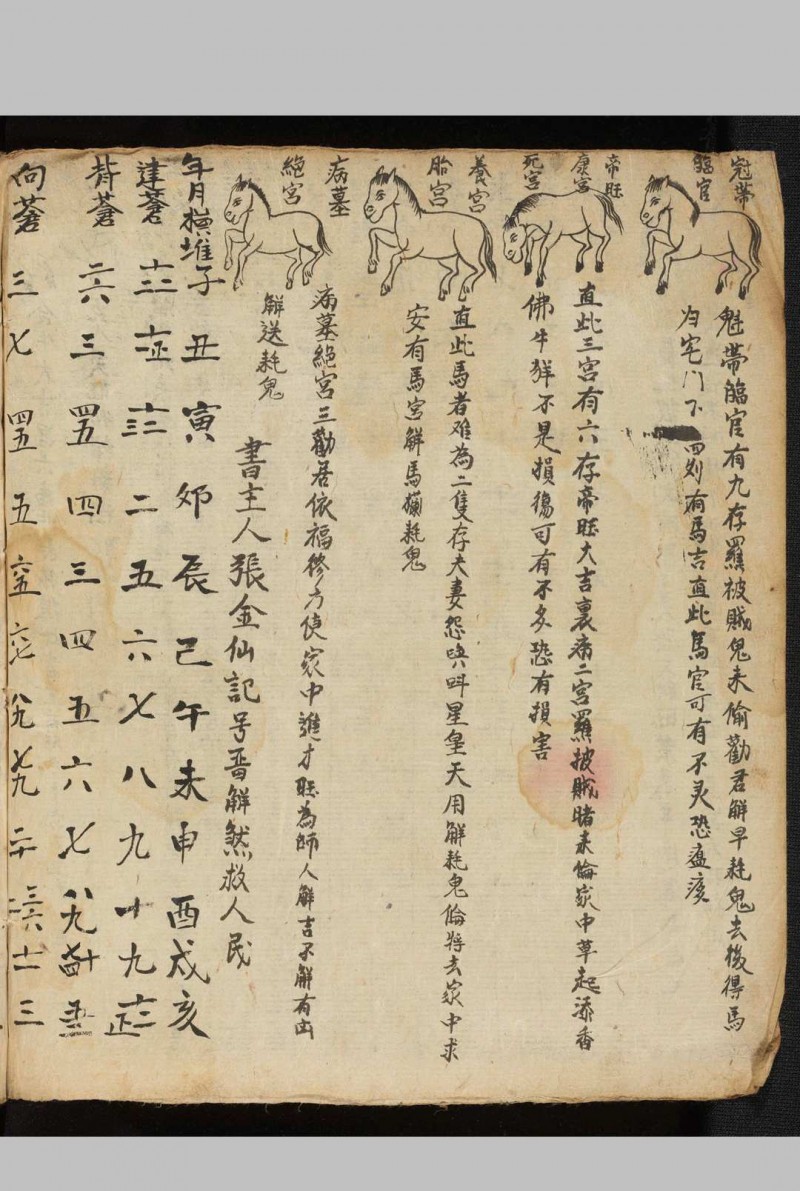 冠帶
臨官
魁帶臨官有九存羅被賊鬼未偷勸君解早耗鬼去後得馬
归宅门下四刻有馬吉直此馬官可有不灵恐瘟疾
帝旺
康宮
死宮
直此三宮有六存帝旺大吉裏病二宮羅披賊賭未偷家中草起添香
佛牛豬不是損傷可有不多恐有損害
養宮
胎宮
直此馬者难為二隻存夫妻怨唤呌星皇天用解耗鬼偷將去家中求
安有馬宮解馬欄耗鬼
病墓
絕宮
病墓絕宮三勸君依福修方使家中進才旺為師人解吉不解有凶
解送耗鬼
書主人張金仙記号晋解煞救人民
年月横堆子丑寅卯辰己午未申酉戍亥
建蒼十二 十二正 十二三 二 五 六 七 八 九 十 九 十二正
背蒼二六 三 四五 四 三 四 五 六 七 八九 十
向蒼三 七 四五 五 六五 六七 八九 七九 二十 三六 十二 三